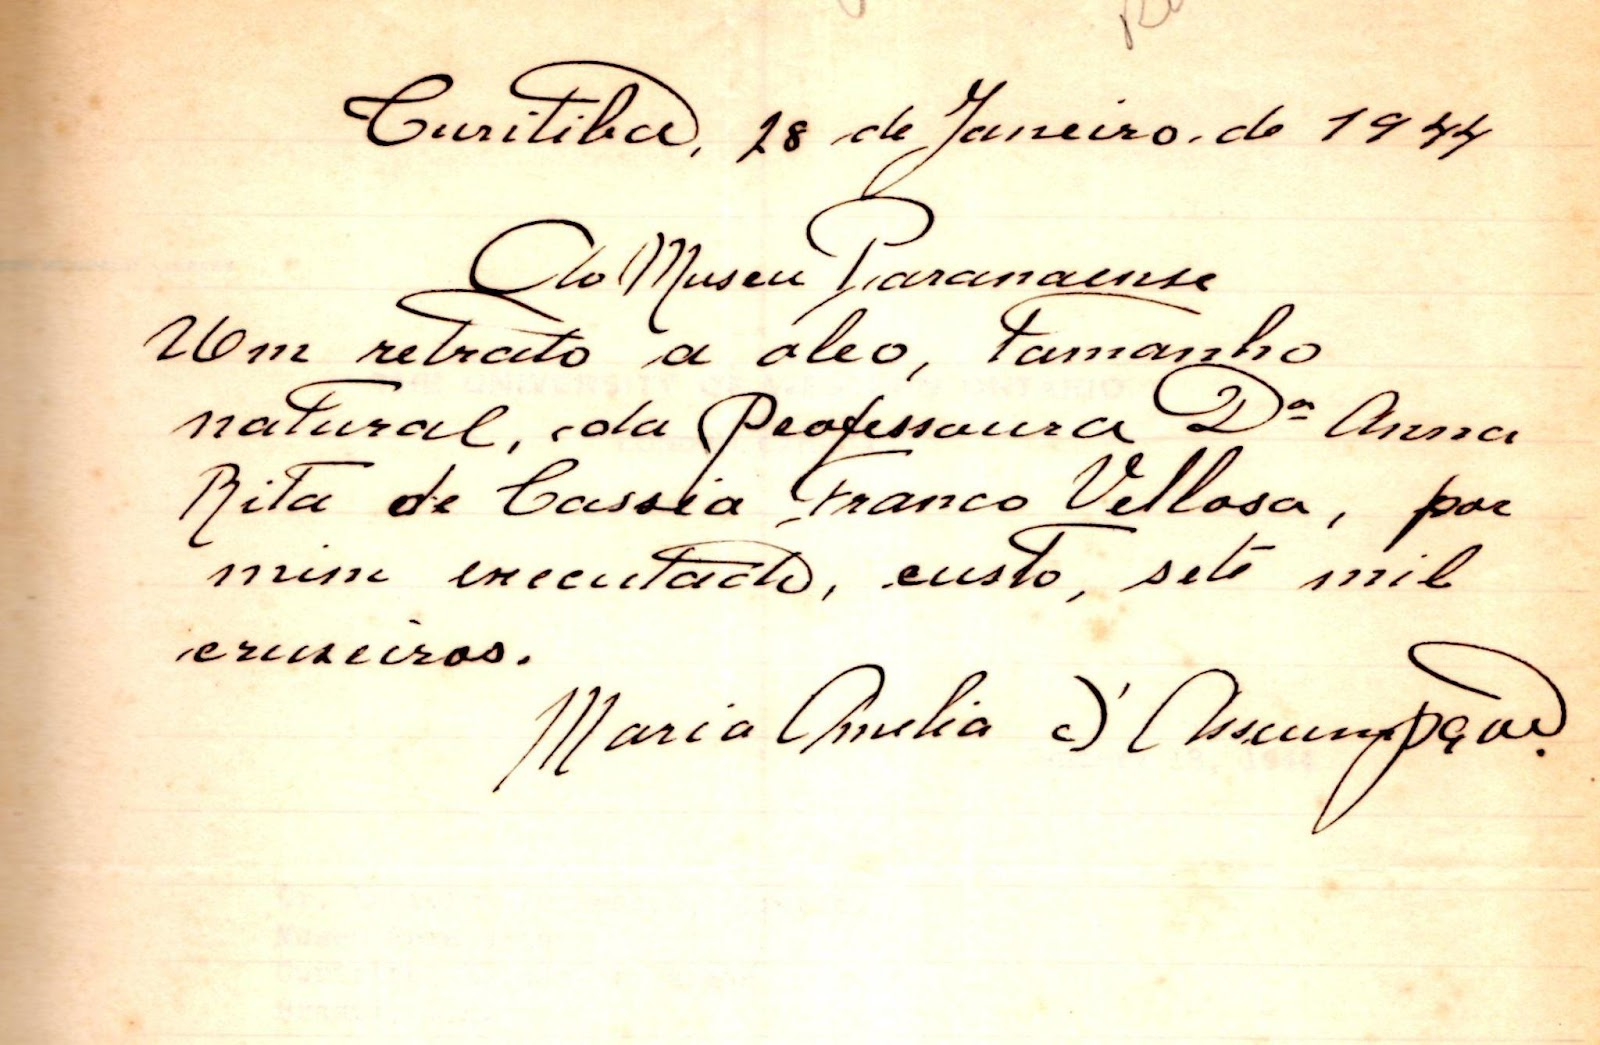 Curitiba, 28 de Janeiro de 1944
Ao Museu Paranaense
Um retrato a oleo, tamanho
natural, da Professoura Dª Anna
Rita de Cassia Franco Vellosa, por
mim executado, custo, sete mil
cruzeiros.
Maria Amelia d'Assumpção.